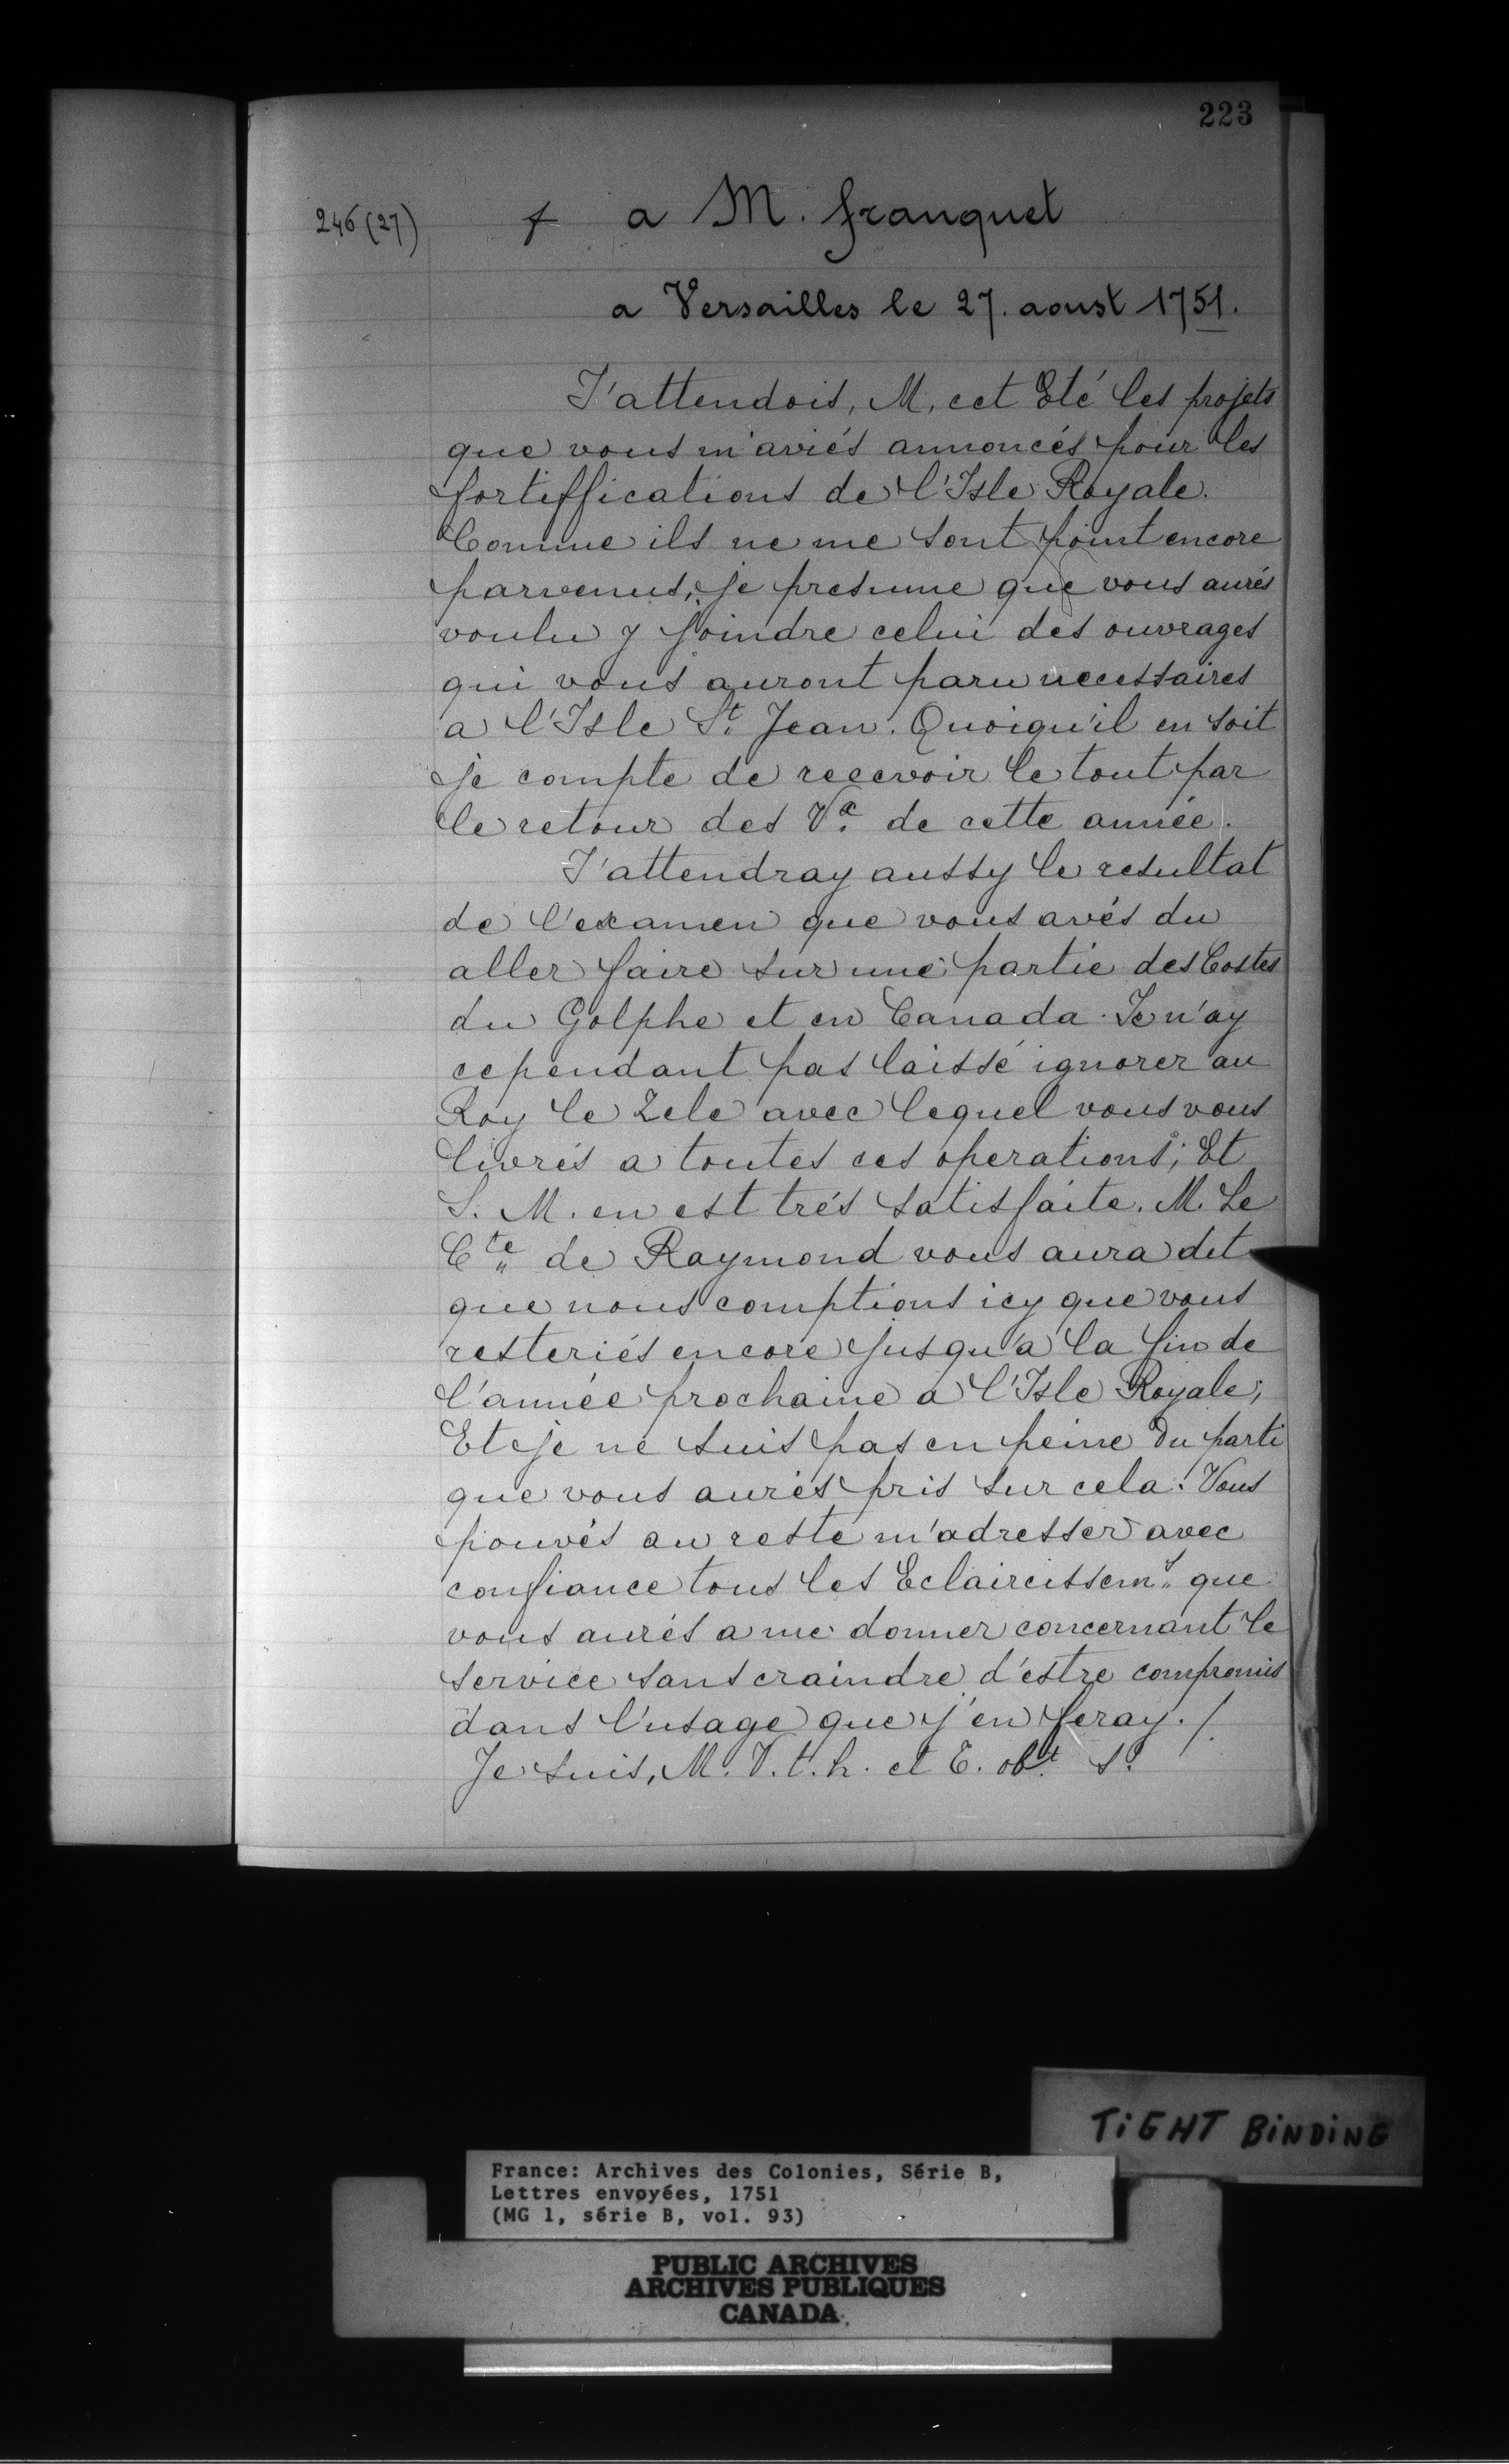 223
246 (27)
f a M. franquet
a Versailles le 27. aoust 1751.
J'attendois, M, cet Eté les projets
que vous m'aviés annoncés pour les
fortiffications de l'Isle Royale.
Comme ils ne me sont point encore
parvenus, je presume que vous aurés
voulu y joindre celui des ouvrages
qui vous auront paru necessaires
a l'Isle St. Jean. Quoiqu'il en soit
je compte de recevoir le tout par
le retour des Vx. de cette année.
J'attendray aussy le resultat
de l'examen que vous avés du
aller faire sur une partie des Costes
du Golphe et en Canada. Je n'ay
cependant pas laissé ignorer au
Roy le Zele avec lequel vous vous
livrés a toutes ces operations; Et
S. M. en est trés satisfaite. M. Le
Cte de Raymond vous aura dit
que nous comptions icy que vous
resteriés encore jusqu'a la fin de
l'année prochaine a l'Isle Royale;
Et je ne suis pas en peine du parti
que vous aurés pris sur cela. Vous
pouvés au reste m'adresser avec
confiance tous les Eclaircissem.s que
vous aurés a me donner concernant le
service sans craindre d'estre compromis
dans l'usage que j'en feray. /.
Je suis, M. V. t. h. et E. obt. S.
TiGHT BiNDiNG
France: Archives des Colonies, Série B,
Lettres envoyées, 1751
(MG 1, série B, vol. 93)
PUBLIC ARCHIVES
ARCHIVES PUBLIQUES
CANADA